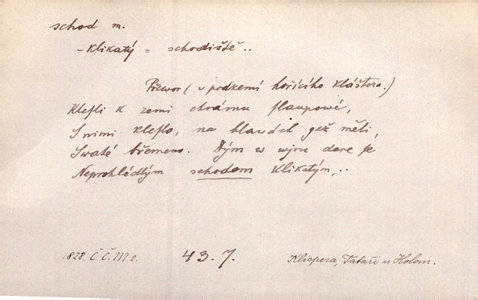 schod m.
- Klikatý = schodiště..
Převor (v podzemí hořícího kláštera.)
Klesli k zemi chrámu sloupové,
S nimi kleslo, na hlavách jež měli,
Svaté břemeno. Dým w wýru dere se
Neprohlédlým schodem klikatým,..
1828. Č.Č.M 2.
43.7.
Klicpera, Tataři u Holom.